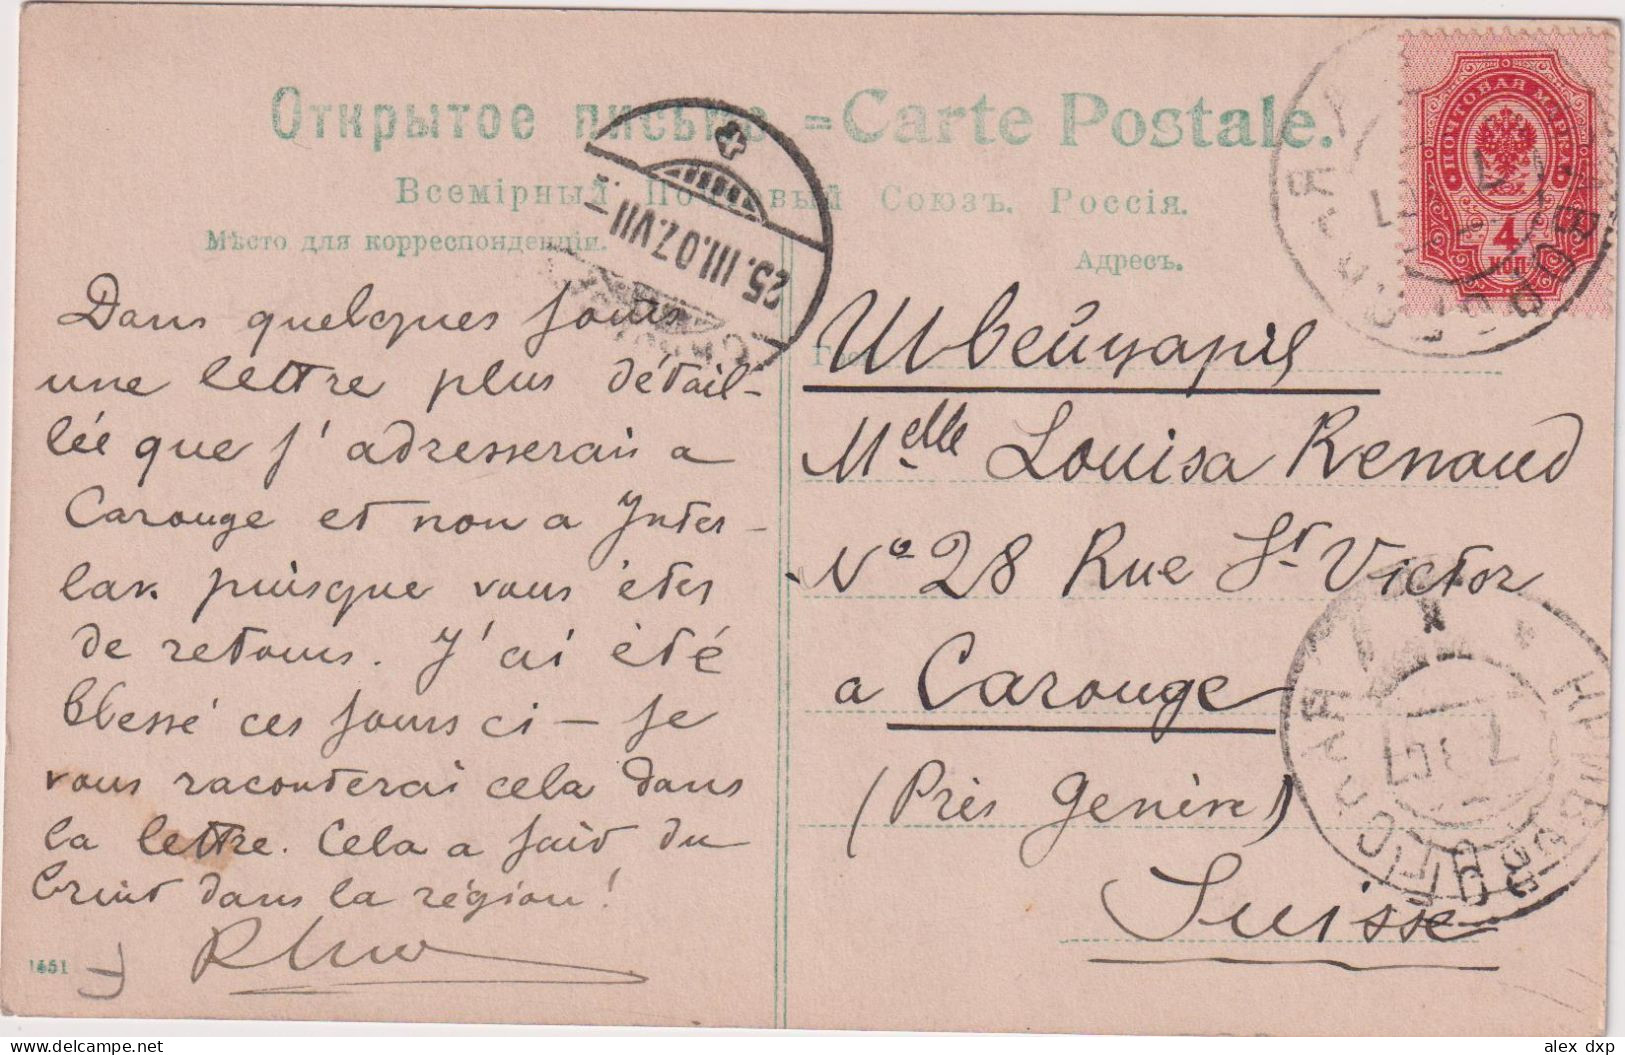 Открытое письмо = Carte Postale.
Всемірный Почтовый Союзъ. Россія.
Мѣсто для корреспонденціи.
Адресъ.
ПОЧТОВАЯ МАРКА
4
КОП
25.III.07.VII–
Dans quelques jours
une lettre plus détail-
lée que j'adresserais a
Carouge et non a Inter-
lak. puisque vous êtes
de retour. J'ai été
blessé ces jours ci – je
vous raconterai cela dans
la lettre. Cela a fait du
bruit dans la région!
Швейцарія
Melle Louisa Renaud
No 28 Rue St Victor
a Carouge
(Près Genève)
Suisse
1451
alex dxp